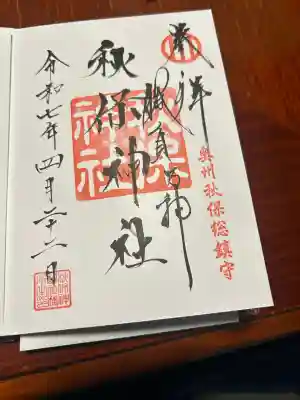 奉拝
奥州秋保総鎮守
勝負の神
秋保神社
令和七年四月二十二日